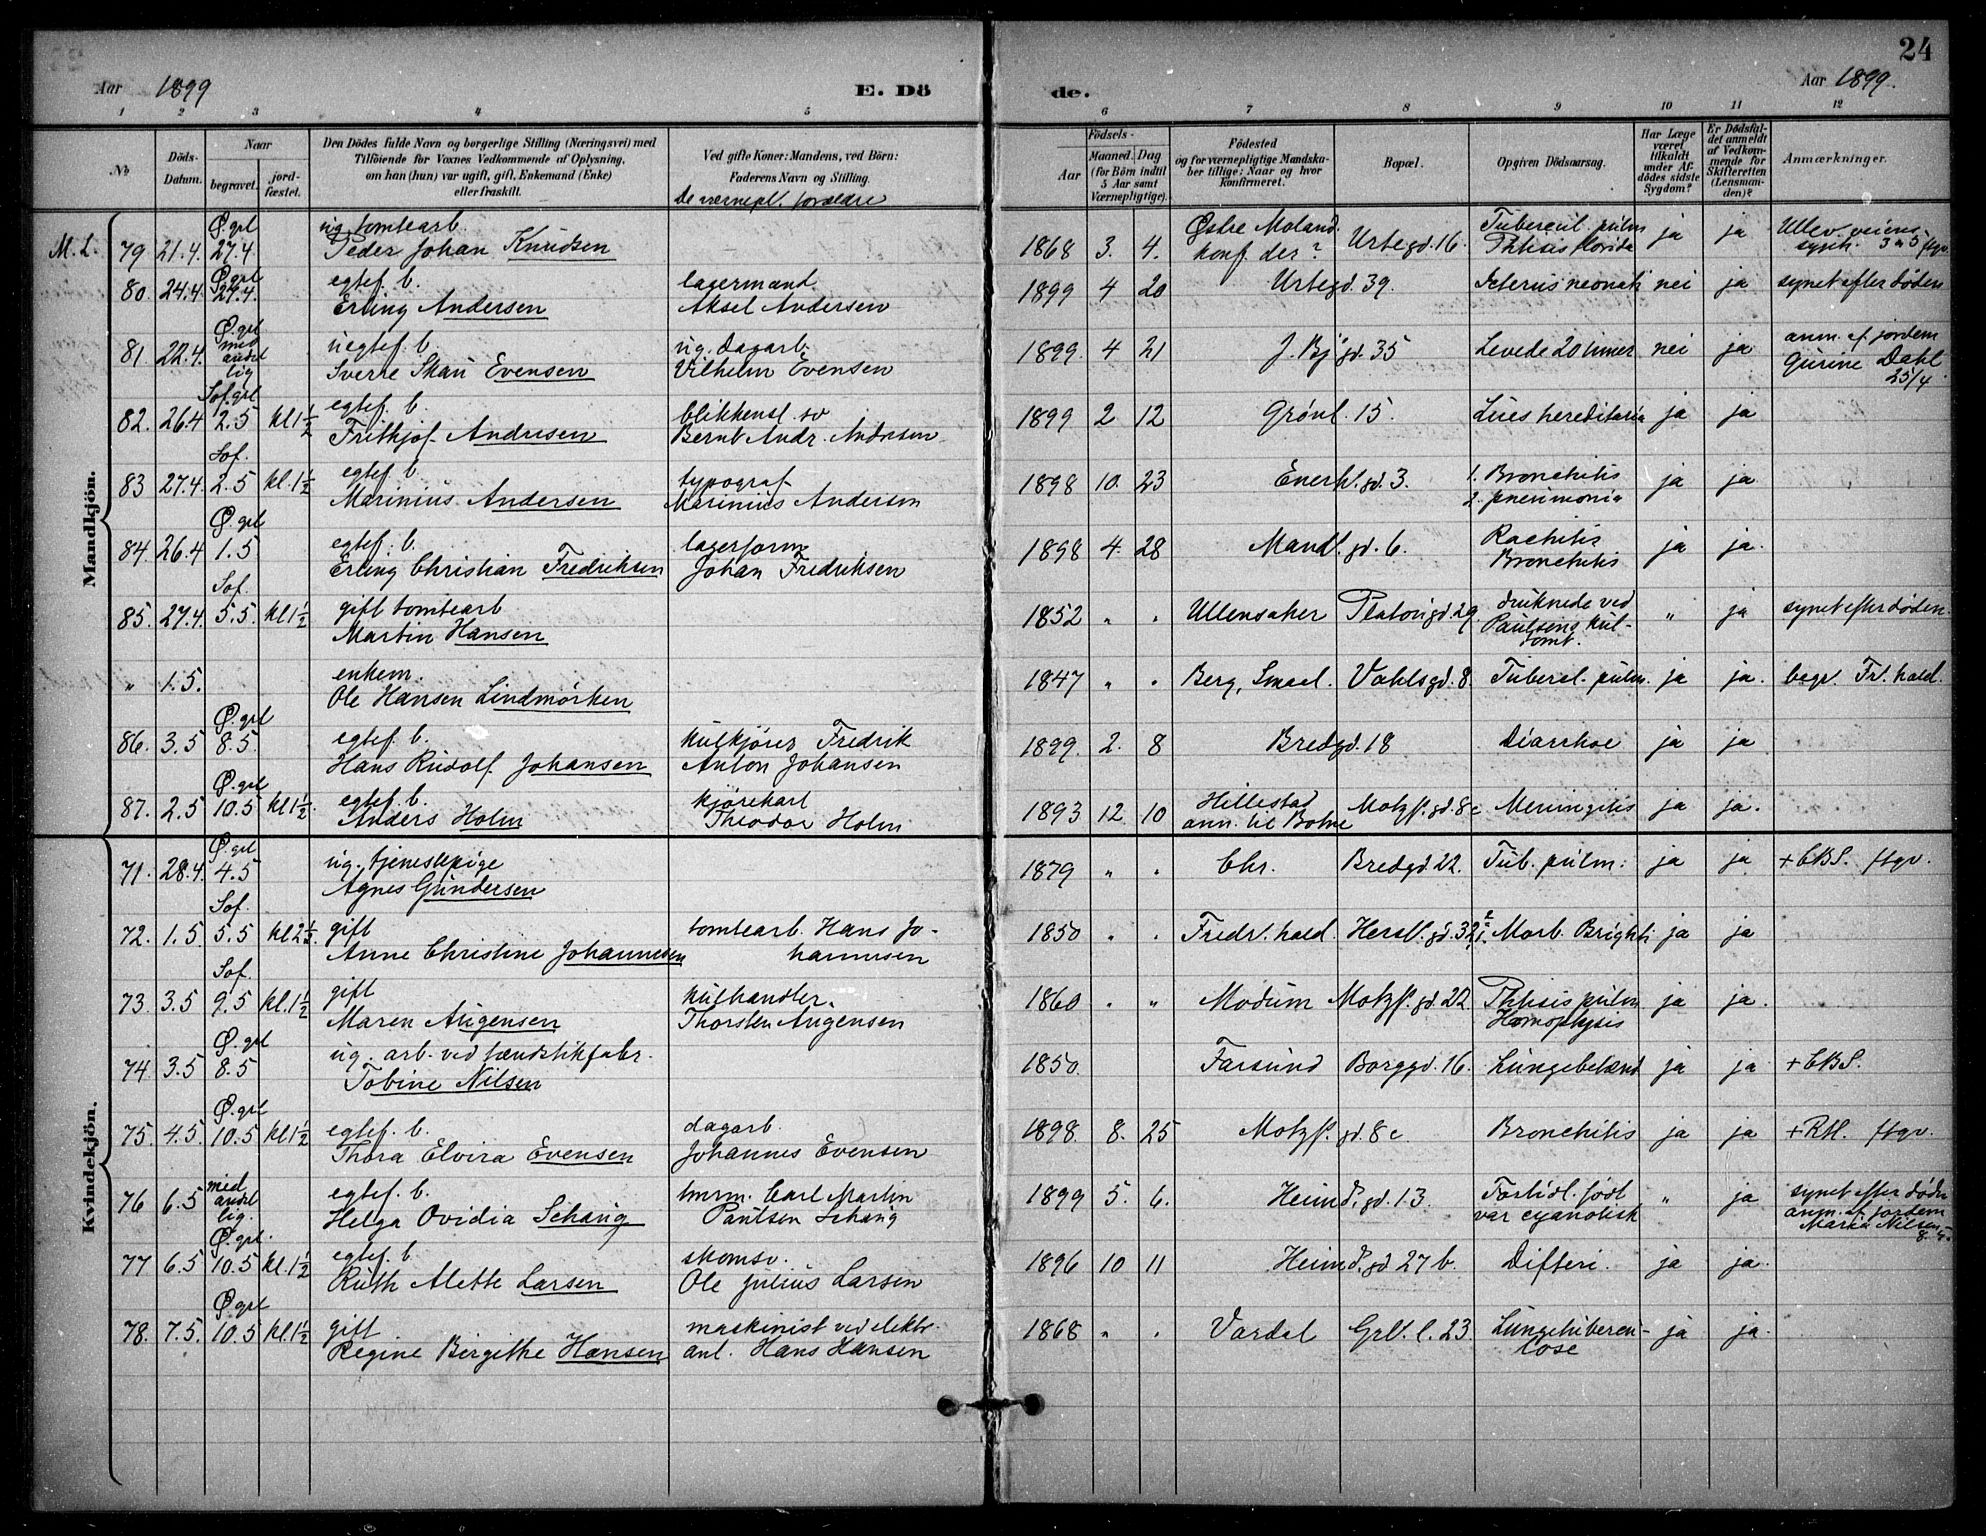 24
Aar 1899 E. Dö
de. Aar 1899.
1 2 3 4 5 6 7 8 9 10 11 12
No
Döds-Datum.
Naar
begravet.
jordfæstet.
Den Dödes fulde Navn og borgerlige Stilling (Næringsvei) med
Tilföiende for Voxnes Vedkommende af Oplysning,
om han (hun) var ugift, gift, Enkemand (Enke)
eller fraskilt.
Ved gifte Koner: Mandens, ved Börn:
Faderens Navn og Stilling.
De værnepl. forældre
Födsels-
Aar
Maaned. Dag
(for Börn indtil
5 Aar samt
Værnepligtige).
Födested
og for værnepligtige Mandska-
ber tillige: Naar og hvor
konfirmeret.
Bopæl.
Opgiven Dödsaarsag.
Har Læge
været
tilkaldt
under Af-
dödes sidste
Sygdom?
Er Dödsfal-
det anmeldt
af Vedkom-
mende for
Skifteretten
(Lensman-
den)?
Anmærkninger.
Mandkjön.
M. L. 79 21.4. Ø.grl 27.4 ug. tomtearb. Peder Johan Knudsen 1868 3. 4. Østre Moland. konf. der? Urtegd. 16. Tubercul. pulm Phtisis florida ja ja Ullev veiens syph. 3 a 5 ftgv.
80. 24.4. Ø.grl 27.4. egtef. b. Erling Andersen lagermand Aksel Andersen 1899 4 20 Urtegd. 39. Icterus neonat. nei ja synet efter døden
81. 22.4. Ø.grl med andet lig uegtef. b. Sverre Skau Evensen ug. dagarb. Vilhelm Evensen 1899. 4 21 J. Bj' gd. 35 Levede 20 timer nei ja anm. af jordem Gurine Dahl 25/4
82. 26.4 Sof.grl 2.5 kl 1 1/2 egtef. b. Fritkjof Andresen blikkensl. sv Bernt Andr. Andresen 1899 2 12 Grønl. 15. Lues hereditaria ja ja
83 27.4. Sof. 2.5 kl. 1 1/2 egtef. b. Marinius Andersen typograf Marinius Andersen 1898 10. 23 Enerh. gd. 3. 1. Bronchitis 2. pneumonia ja ja
84. 26.4 Ø.grl 1.5 egtef. b. Erling Christian Fredriksen lagerform. Johan Fredriksen 1898 4. 28 Mandl. gd. 6. Rachitis Bronchitis ja ja.
85. 27.4. Sof. 5.5. kl 1 1/2 gift tomtearb Martin Hansen 1852 " " Ullensaker Platougd. 29. druknede ved Paulsens kul-tomt. " ja synet efter døden.
" 1.5. enkem. Ole Hansen Lindmørken 1847 " " Berg, Smaal. Vahlsgd. 8. Tubercl. pulm. ja ja. begr. Fr. hald.
86. 3.5 Ø.grl 8.5. egtef. b. Hans Rudolf Johansen kulkjører Fredrik Anton Johansen 1899. 2. 8 Bredgd. 18 Diarrhoe ja ja
87. 2.5 Ø.grl 10.5 kl 1 1/2. egtef. b. Anders Holm kjørekarl Theodor Holm 1893 12 10 Hillestad ann. til Botne Motzf. gd. 8c Meningitis ja ja.
Kvindekjön.
71. 28.4. Ø.grl 4.5 ug. tjenestepige Agnes Gundersen 1879 " " Chr. Bredgd. 22. Tub. pulm: ja ja + CBS. ftgv.
72. 1.5. Sof. 5.5 kl 2 1/2. gift Anne Christine Johannesen tomtearb. Hans Johannesen 1850 " " Fredr. hald. Hersl. gd. 32, Morb. Brighti ja ja
73. 3.5 Sof. 9.5 kl. 1 1/2 gift Maren Augensen kulhandler. Thorsten Augensen 1860 " " Modum Motzf. gd. 22. Phtisis pulm Hæmoptysis ja ja.
74. 3.5 Ø.grl 8.5 ug. arb. ved tændstikfabr. Tobine Nilsen 1850. Farsund Borggd. 16. Lungebetænd. ja ja + CBS.
75. 4.5. Ø.grl 10.5 kl 1 1/2 egtef. b. Thora Elvira Evensen dagarb. Johannes Evensen 1898. 8. 25 Motzf. gd. 8c Bronchitis ja ja + RH. ftgv.
76 6.5 med andet lig. egtef. b. Helga Ovidia Schaug tmrm. Carl Martin Paulsen Schaug 1899 5. 6. Heimd. gd. 13. Fortidl. født var cyanotisk " ja synet efter døden anm. af jordem Maria Nilsen
77 6.5 Ø.grl. 10.5 kl. 1 1/2 egtef. b. Ruth Alette Larsen skomsv. Ole Julius Larsen 1896 10 11 Heimd. gd 27 b. Difteri. ja ja.
78. 7.5. Ø grl 10.5 kl. 1 1/2 gift Regine Birgithe Hansen maskinist ved elektr. anl. Hans Hansen 1868 " " Vardal Grl. l. 23. Lungetuberculose ja ja.